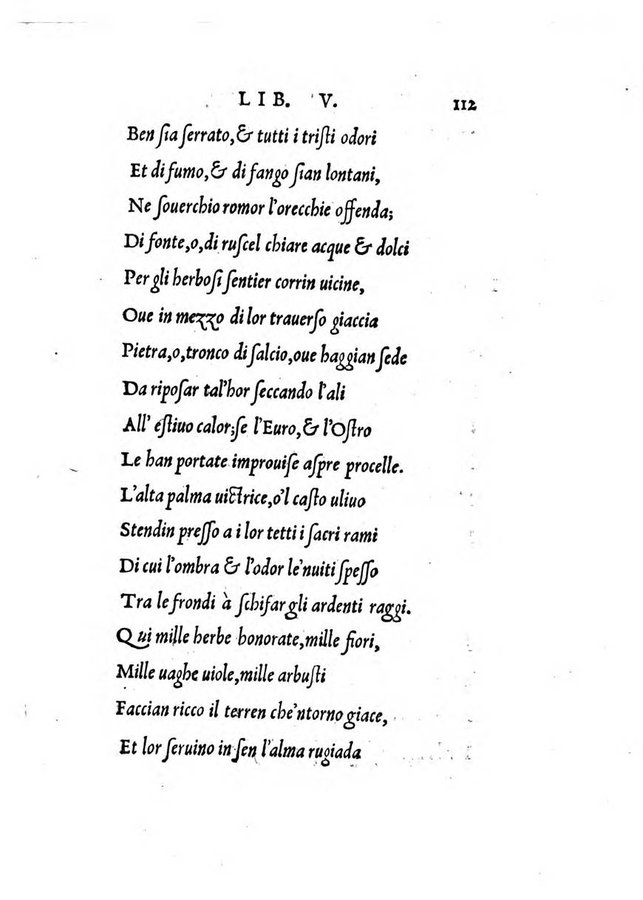 LIB. V. 112
Ben ſia ſerrato,& tutti i triſti odori
Et di fumo,& di fango ſian lontani,
Ne ſouerchio romor l'orecchie offenda;
Di fonte,o,di ruſcel chiare acque & dolci
Per gli herboſi ſentier corrin uicine,
Oue in mezzo di lor trauerſo giaccia
Pietra,o,tronco di ſalcio,oue haggian ſede
Da ripoſar tal'hor ſeccando l'ali
All' eſtiuo calor;ſe l'Euro,& l'Oſtro
Le han portate improuiſe aſpre procelle.
L'alta palma uictrice,o'l caſto uliuo
Stendin preſſo a i lor tetti i ſacri rami
Di cui l'ombra & l'odor le'nuiti ſpeſſo
Tra le frondi à ſchifar gli ardenti raggi.
Qui mille herbe honorate,mille fiori,
Mille uaghe uiole,mille arbuſti
Faccian ricco il terren che'ntorno giace,
Et lor ſeruino in ſen l'alma rugiada